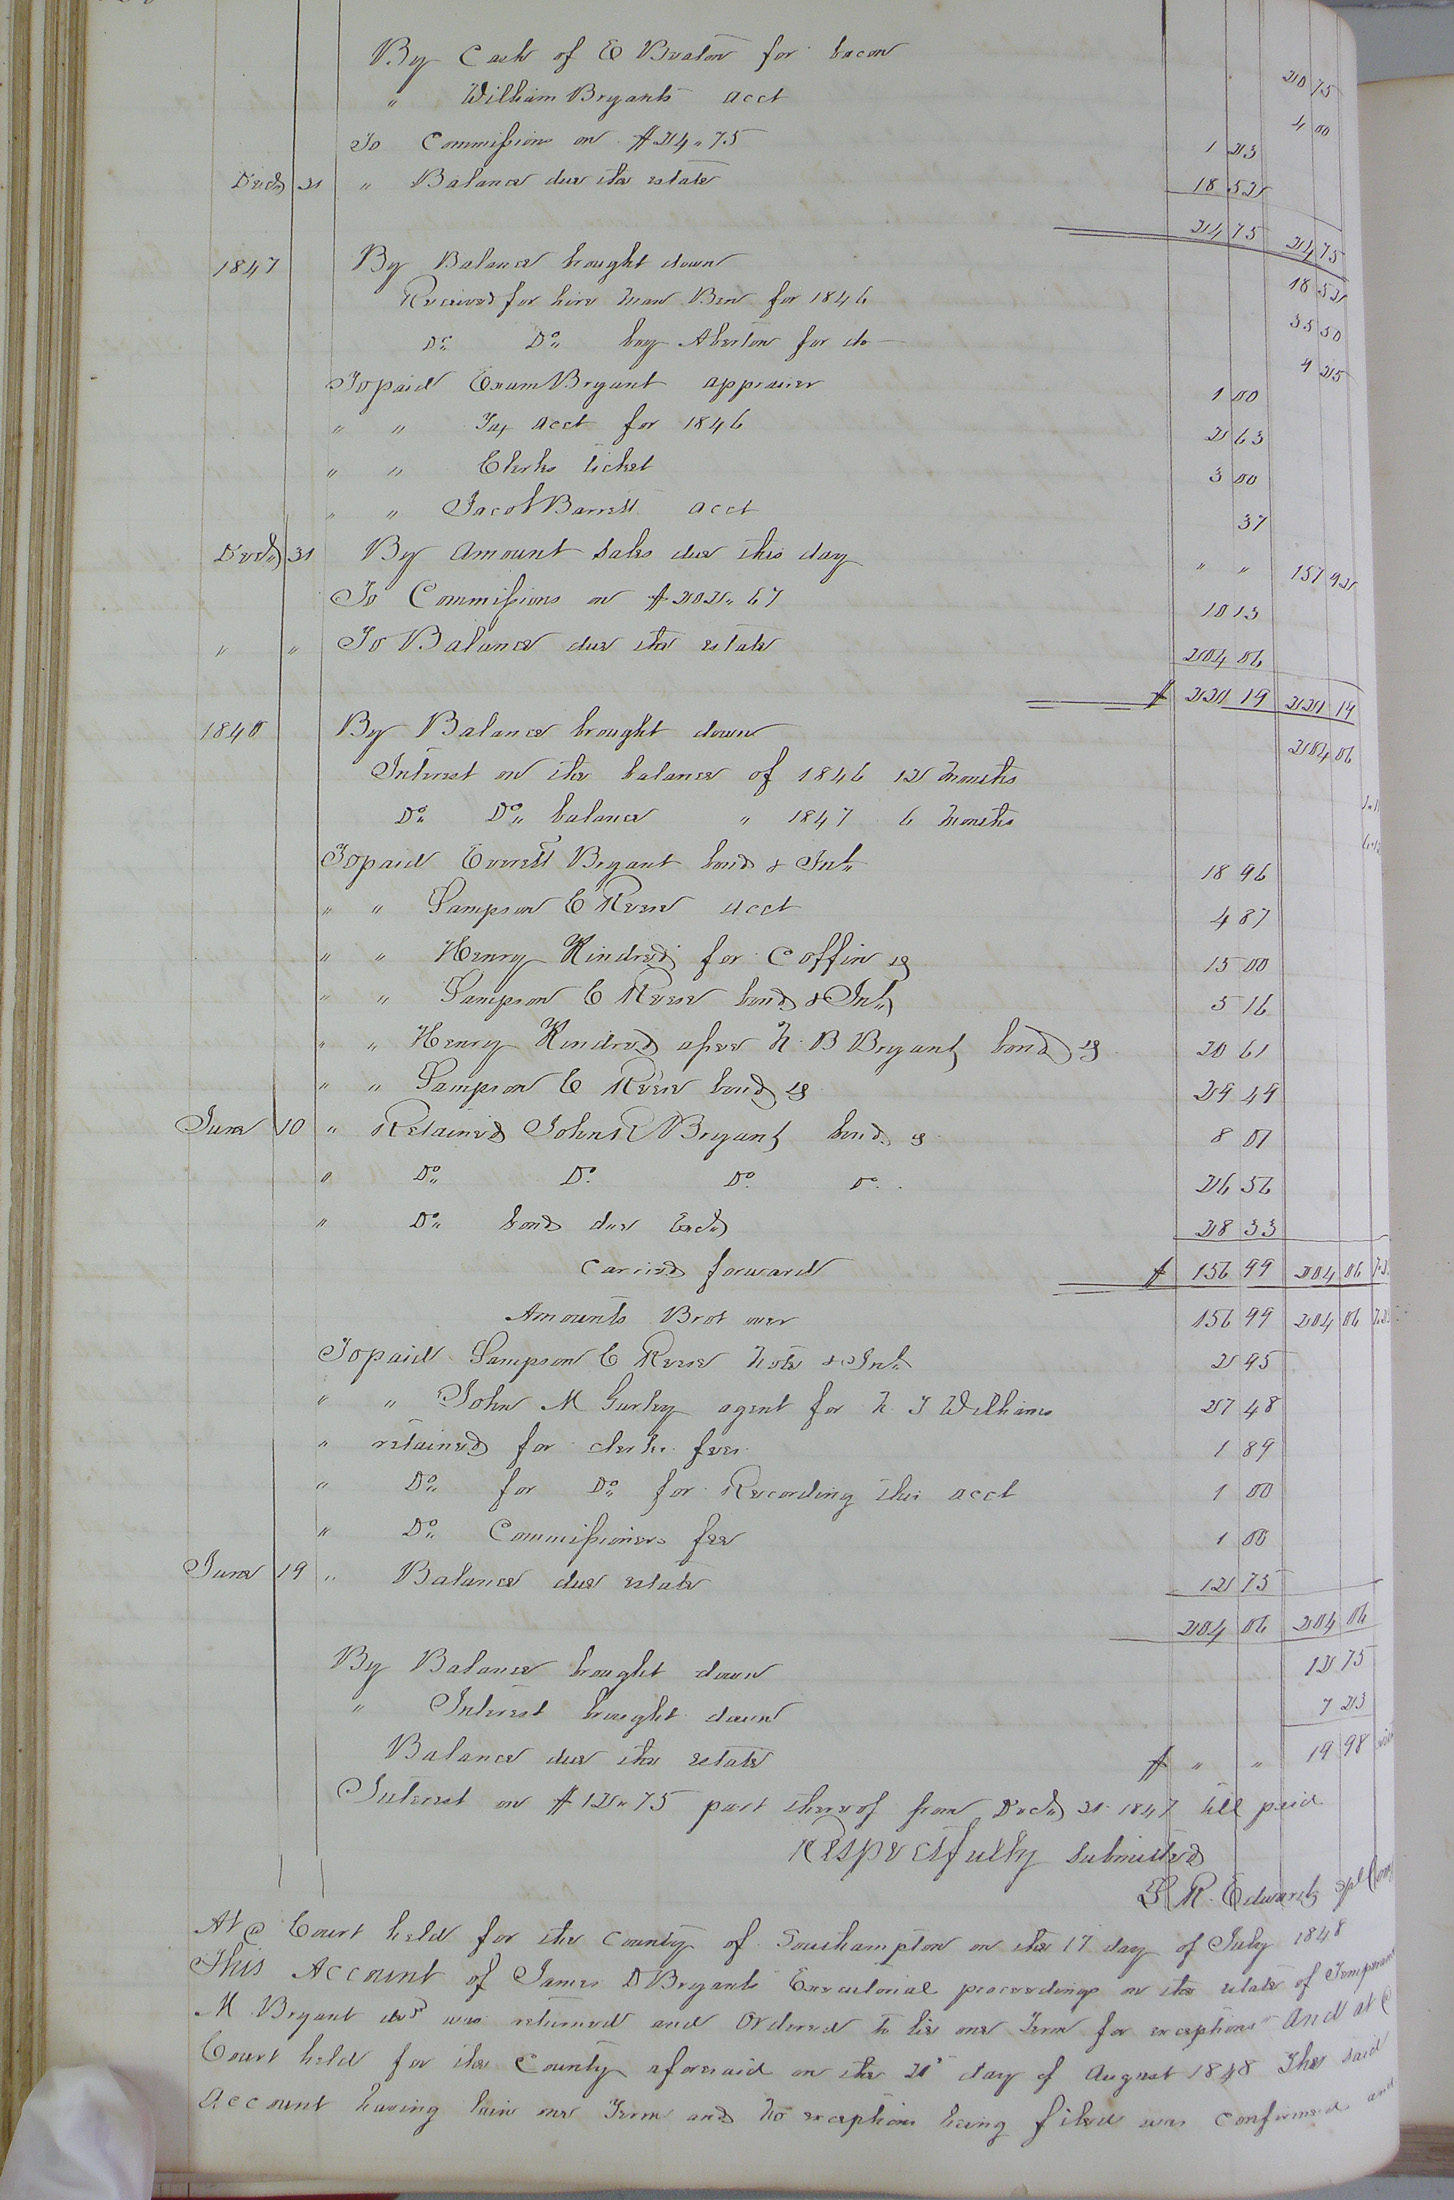 By Cash of E Beaton for bacon 20 75
" William Bryants acct 4 00
To Commission on $24.,75 1 23
Decr 31 " Balance due the estate 18 52
24 75 24 75
1847 By Balance brought down 18 52
Received for hire Man Ben for 1846 35 50
Do Do boy Alberton for do 9 25
To paid Exum Bryant appraiser 1 00
" " Tax acct for 1846 2 63
" " Clerks ticket 3 00
" " Jacob Barrett acct 37
Decr 31 By Amount Sales due this day " " 157 92
To Commissions on $202.,67 10 13
" " To Balance due the estate 204 06
$ 221 19 221 19
1848 By Balance brought down 204 06
Interest on the balance of 1846 12 Months 1.11
Do Do balance " 1847 6 Months 6.12
To paid Everett Bryant bond & Int 18 96
" " Sampson C Reese acct 4 87
" " Henry Kindred for Coffin 15 00
" " Sampson C Reese bond & Int 5 16
" " Henry Kindred assee N. B Bryant bond 20 61
" " Sampson C Reese bond 29 49
June 10 " Retained John R Bryant bond 8 01
" Do Do Do Do 26 56
" Do bond due Exor 28 33
Carried forward $ 156 99 204 06 7.23
Amounts Brot over 156 99 204 06 7.23
To paid Sampson C Reese note & Int 2 95
" " John M Gurley agent for N. T Williams 27 48
" retained for clerks fees 1 89
" Do for Do for Recording this acct 1 00
" Do Commissioners fee 1 00
June 19 " Balance due estate 12 75
204 06 204 06
By Balance brought down 12 75
" Interest brought down 7 23
Balance due the estate $ " " 19 98 with
Interest on $12.,75 part thereof from Decr 31. 1847 till paid
Respectfully Submitted
R. Edwards Spl Com
At a Court held for the County of Southampton on the 17 day of July 1848
This Account of James D Bryants Executorial proceedings on the estate of Temperance
M Bryant decd was returned and Ordered to lie one Term for exceptions And at a
Court held for the County aforesaid on the 21st day of August 1848 The said
Account having lain one Term and no exceptions being filed was confirmed and